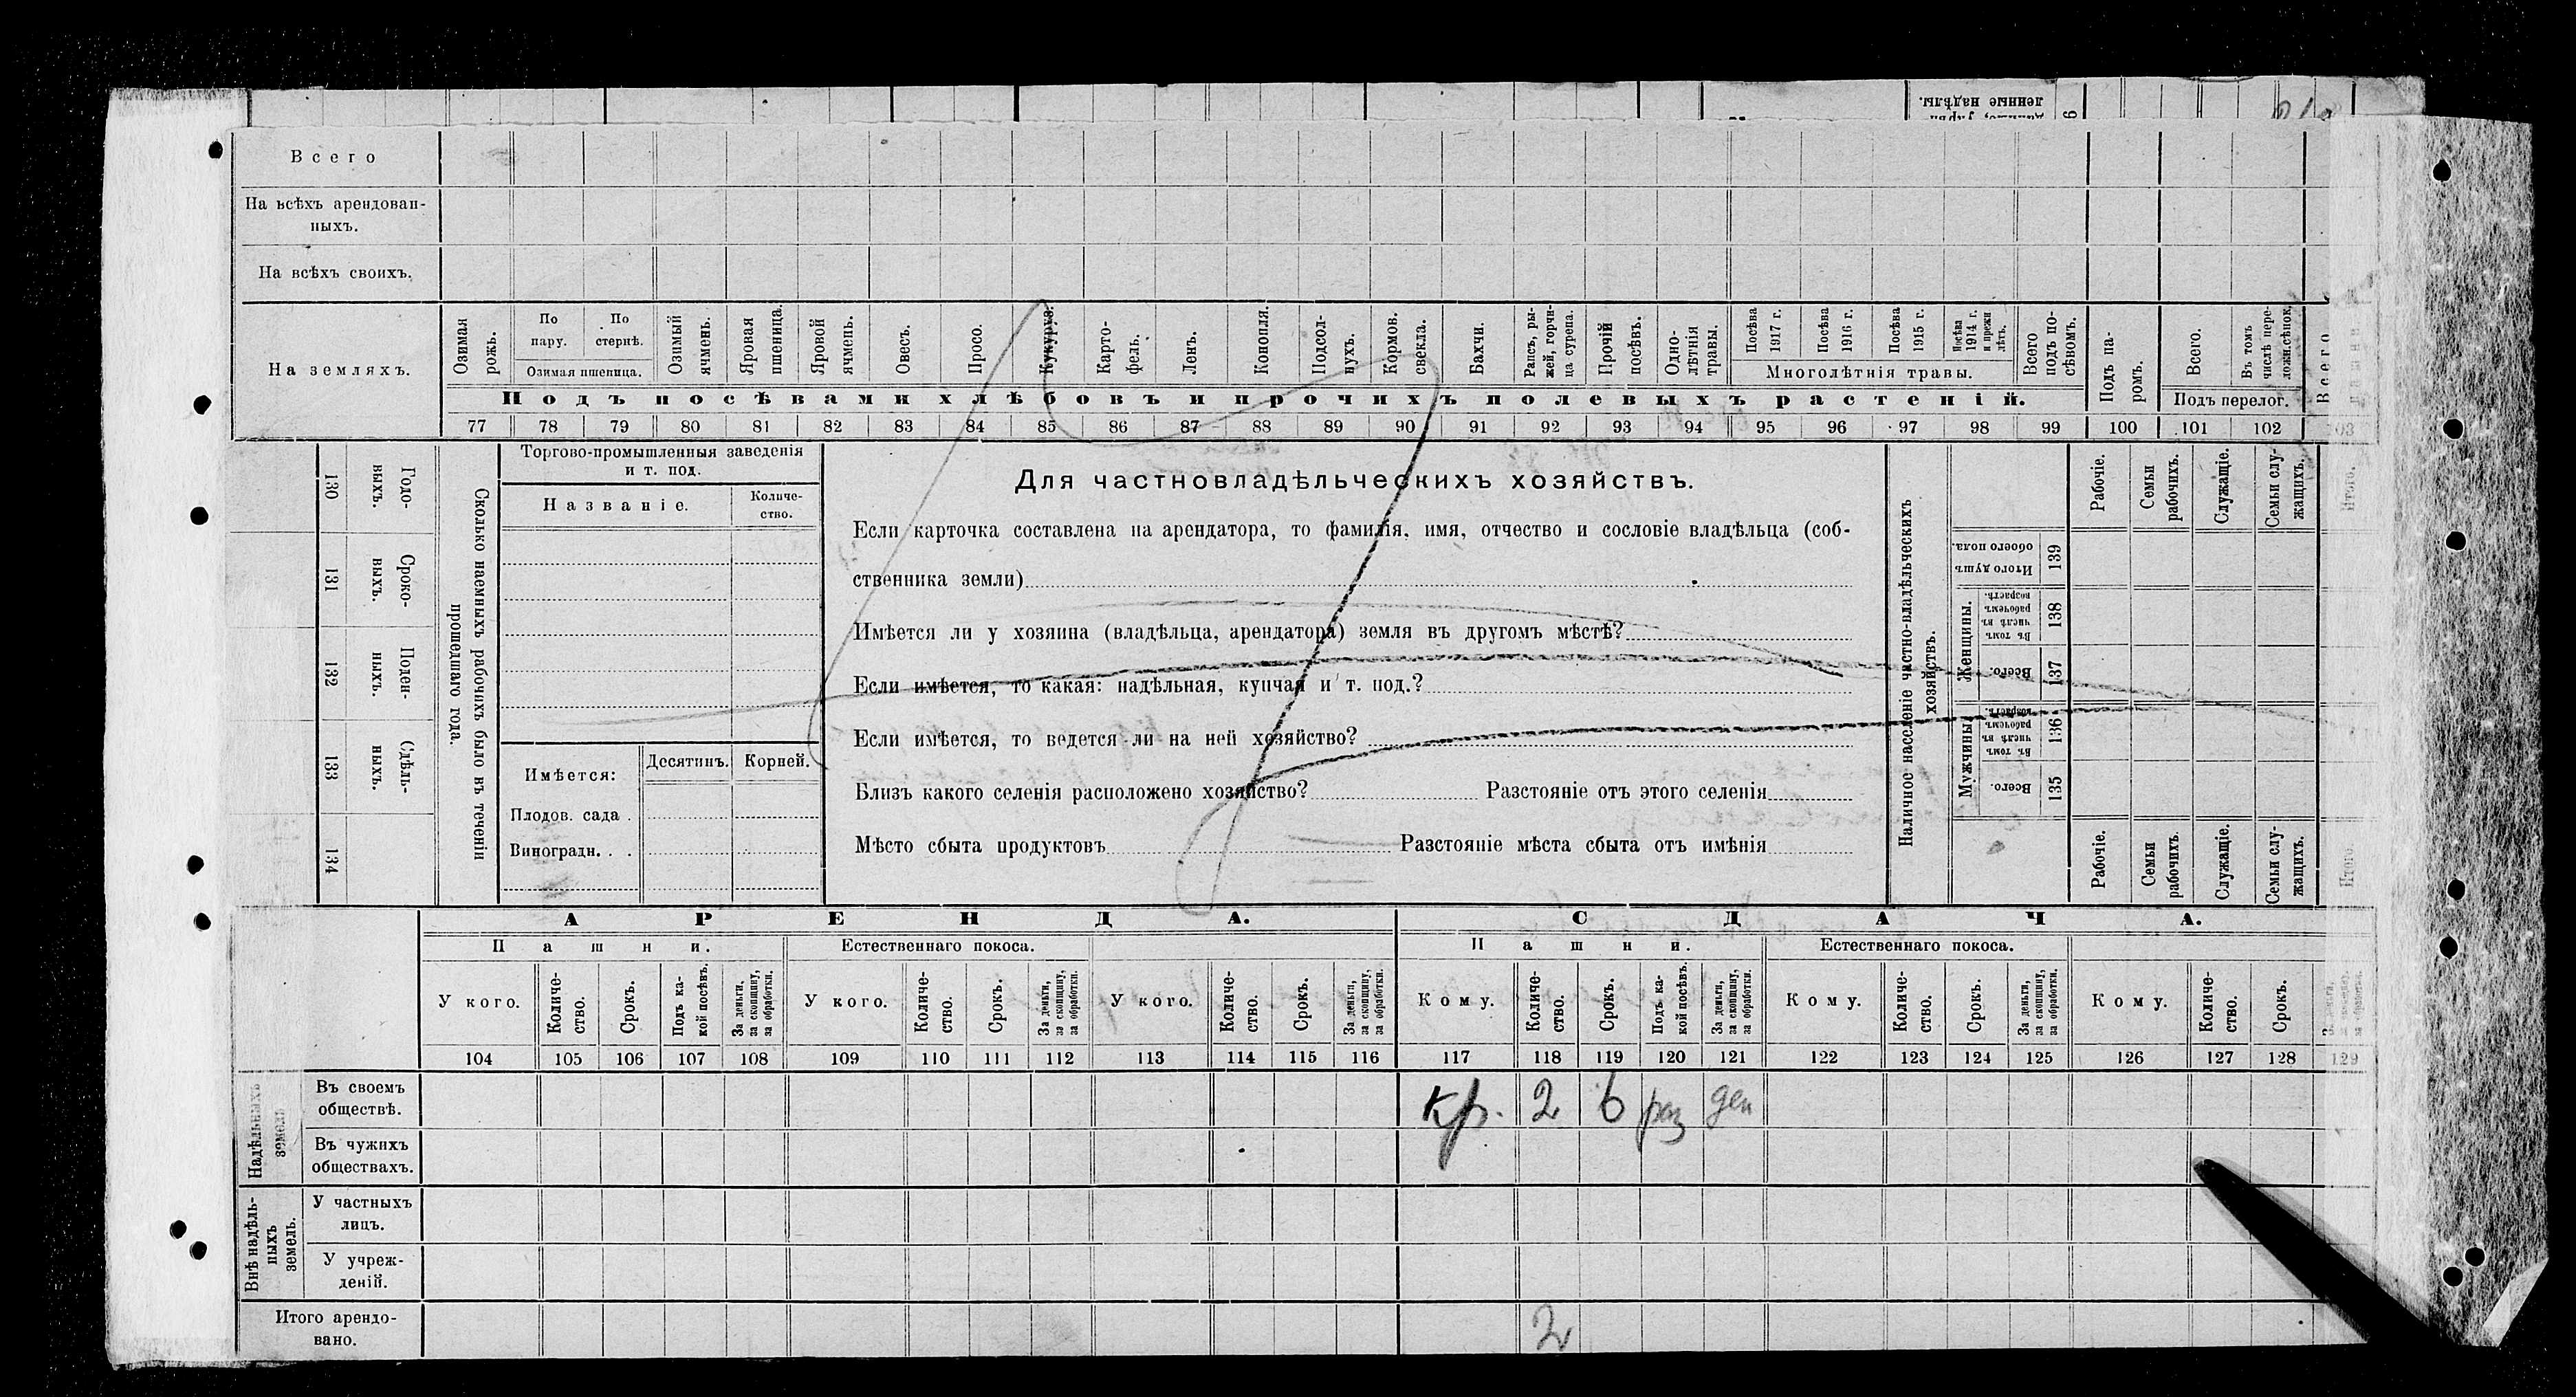 денные надѣлы.
Всего
На всѣхъ арендован-
ныхъ.
На всѣхъ своихъ.
На земляхъ.
Озимая рожь.
По пару.
По стернѣ.
Озимая пшеница.
Озимый ячмень.
Яровая пшеница.
Яровой ячмень.
Овесъ.
Просо.
Кукуруз.
Карто-фель.
Ленъ.
Конопля.
Подсол-нухъ.
Кормов. свекла.
Бахчи.
Рапсъ, ры-жей, горчи-ца сурепа.
Прочій посѣвъ.
Одно-лѣтнія травы.
Посѣва 1917 г.
Посѣва 1916 г.
Посѣва 1915 г.
Посѣва 1914 г. и прежн лѣтъ.
Многолѣтнія травы.
Всего подъ по-сѣвомъ.
Подъ па-ромъ.
Всего.
Въ томъ числѣ пере-ложн.сѣнок.
Подъ перелог.
Всего
Подъ посѣвами хлѣбовъ и прочихъ полевыхъ растеній.
77 78 79 80 81 82 83 84 85 86 87 88 89 90 91 92 93 94 95 96 97 98 99 100 101 102 03
130 Годо-выхъ.
131 Сроко-выхъ.
132 Поден-ныхъ.
133 Сдѣль-ныхъ.
134
Сколько наемныхъ рабочихъ было въ теченіи
прошедшаго года.
Торгово-промышленныя заведенія
и т. под.
Названіе.
Количе-ство.
Имѣется:
Десятинъ.
Корней.
Плодов. сада .
Виноградн. . .
Для частновладѣльческихъ хозяйствъ.
Если карточка составлена на арендатора, то фамилія, имя, отчество и сословіе владѣльца (соб-
ственника земли)
Имѣется ли у хозяина (владѣльца, арендатора) земля въ другомъ мѣстѣ?
Если имѣется, то какая: надѣльная, купчая и т. под.?
Если имѣется, то ведется ли на ней хозяйство?
Близъ какого селенія расположено хозяйство? Разстояніе отъ этого селенія
Мѣсто сбыта продуктовъ Разстояніе мѣста сбыта отъ имѣнія
Наличное населеніе частно-владѣльческихъ
хозяйствъ.
Рабочіе.
Семьи рабочихъ.
Служащіе.
Семьи слу-жащихъ.
Итого.
Итого душ обоего пола. 139
Женщины.
Въ томъ числѣ въ рабочемъ возрастѣ. 138
Всего. 137
Мужчины.
Въ томъ числѣ въ рабочемъ возрастѣ. 136
Всего. 135
Рабочіе.
Семьи рабочихъ.
Служащіе.
Семьи слу-жащихъ.
Итого.
АРЕНДА. СДАЧА.
Пашни. Естественнаго покоса. Пашни. Естественнаго покоса.
У кого. Количе-ство. Срокъ. Подъ ка-кой посѣвъ. За деньги, за скопщину, за обработки.
У кого. Количе-ство. Срокъ. За деньги, за скопщину, за обработки.
У кого. Количе-ство. Срокъ. За деньги, за скопщину, за обработки.
Кому. Количе-ство. Срокъ. Подъ ка-кой посѣвъ. За деньги, за скопщину, за обработки.
Кому. Количе-ство. Срокъ. За деньги, за скопщину, за обработки.
Кому. Количе-ство. Срокъ.
104 105 106 107 108 109 110 111 112 113 114 115 116 117 118 119 120 121 122 123 124 125 126 127 128 129
Надѣльныхъ земель
Въ своемъ
обществѣ.
Кр. 2 6 раз ден
Въ чужихъ
обществахъ.
Внѣ надѣль-ныхъ земель.
У частныхъ
лицъ.
У учреж-
деній.
Итого арендо-
вано.
2